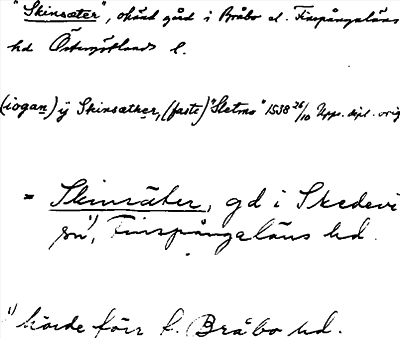 "Skinsæter", okänd gård i Bråbo el. Finspångaläns
hd Östergötlands l.
(iogan) ÿ Skinsæther, (faste) "Sletmo" 1538 26/10 Upps. dipl. orig
= Skinsäter, gd i Skedevi
sn¹), Finspångaläns hd.
¹) hörde förr t. Bråbo hd.